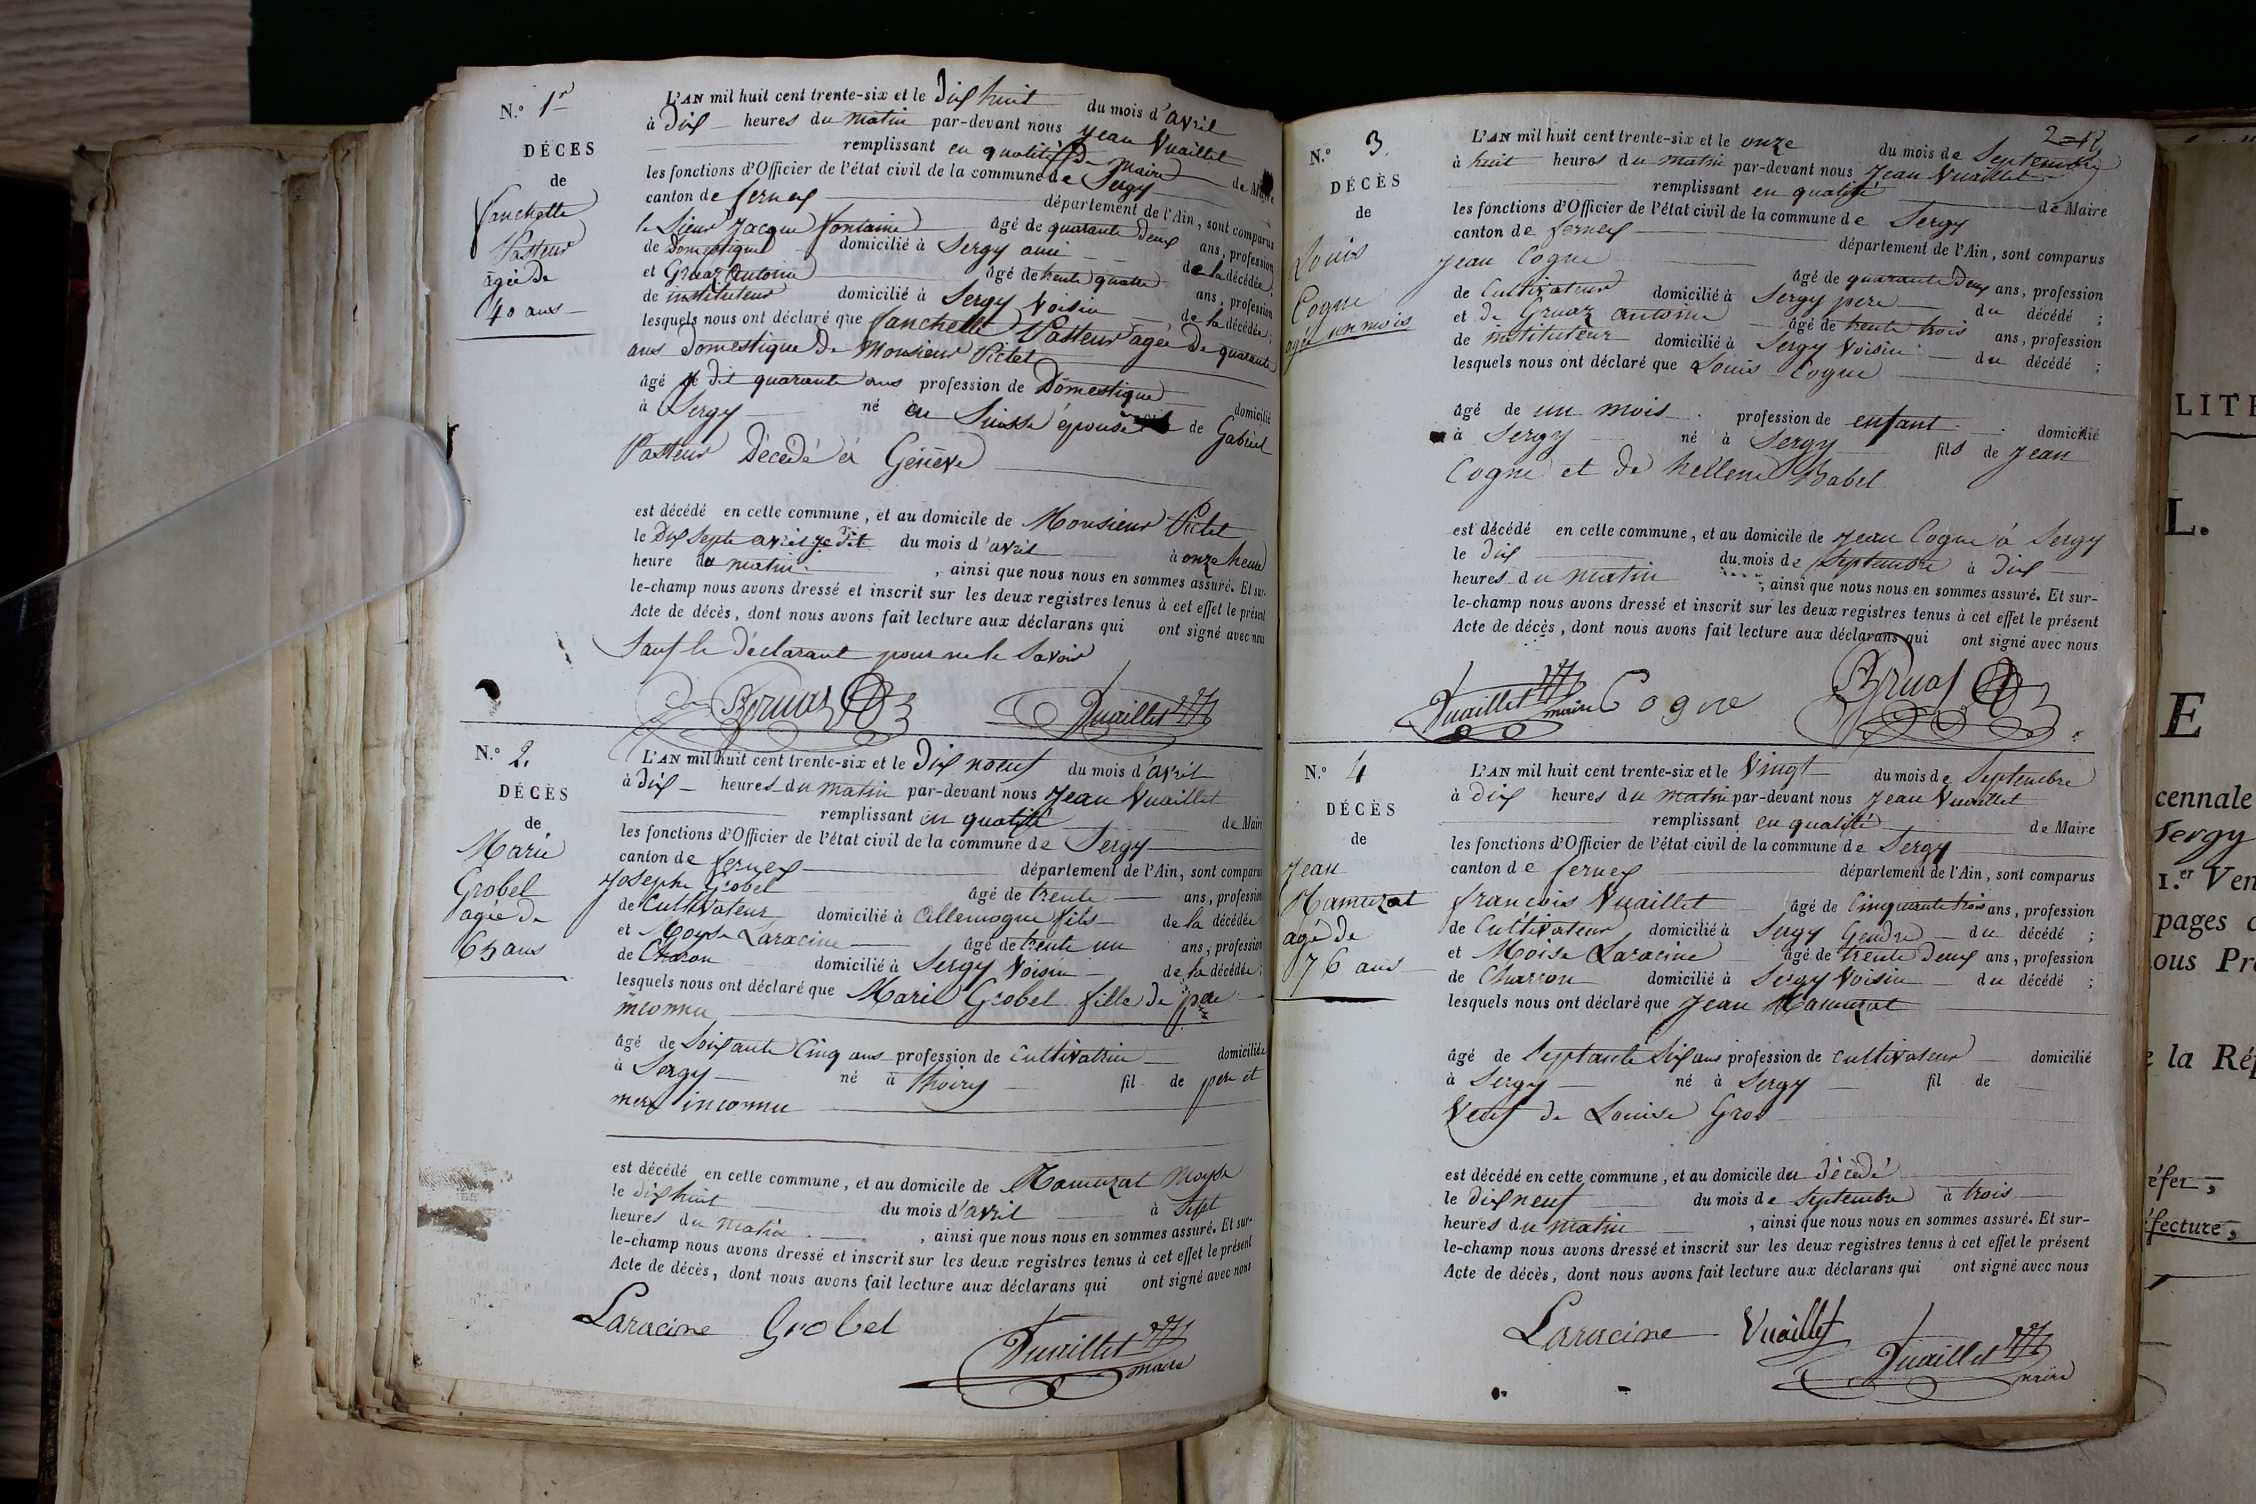 N.º 1r
DÉCES
de
Fanchette
Pasteur
agée de
40 ans
L'AN mil huit cent trente-six et le Dix huit du mois d'avril
à Dix heures du matin par-devant nous Jean Vuaillet
remplissant en qualité de Maire de Maire
les fonctions d'Officier de l'état civil de la commune de Sergy
canton de ferney département de l'Ain, sont comparus
le Sieur Jacque fontaine âgé de quarante Deux ans, profession
de Domestique domicilié à Sergy ami de la décédée;
et Gruaz Antoine âgé de trente quatre ans, profession
de instituteur domicilié à Sergy Voisin de la décédée;
lesquels nous ont déclaré que fanchette Pasteur agée de quarante
ans domestique de Monsieur Pictet
âgé je dit quarante ans profession de Domestique domicilié
à Sergy né en Suisse épouse de Gabriel
Pasteur Décédé à Genève
est décédé en cette commune, et au domicile de Monsieur Pictet
le Dix Septe avril je dit du mois d'avril à onze heure
heure du matin , ainsi que nous nous en sommes assuré. Et sur-
le-champ nous avons dressé et inscrit sur les deux registres tenus à cet effet le présent
Acte de décès, dont nous avons fait lecture aux déclarans qui ont signé avec nous
Sauf le Déclarant pour ne le Savoir
Gruaz Vuaillet
N.º 2.
DÉCÈS
de
Marie
Grobel
agée de
65 ans
L'AN mil huit cent trente-six et le Dix noeuf du mois d'avril
à Dix heures du matin par-devant nous Jean Vuaillet
remplissant en qualité de Maire
les fonctions d'Officier de l'état civil de la commune de Sergy
canton de ferney département de l'Ain, sont comparus
Joseph Grobel âgé de trente ans, profession
de Cultivateur domicilié à allemogne fils de la décédée
et Moyse Laracine âgé de trente un ans, profession
de Charon domicilié à Sergy Voisin de la décédée;
lesquels nous ont déclaré que Marie Grobel fille de père
inconnu
âgé de Soixante Cinq ans profession de cultivatrice domiciliée
à Sergy né à thoiry fil de pere et
mere inconnu
est décédé en cette commune, et au domicile de Ramuzat Moyse
le dix huit du mois d'avril à Sept
heures du matin , ainsi que nous nous en sommes assuré. Et sur-
le-champ nous avons dressé et inscrit sur les deux registres tenus à cet effet le présent
Acte de décès, dont nous avons fait lecture aux déclarans qui ont signé avec nous
Laracine Grobel Vuaillet
maire
N.º 3
DÉCÈS
de
Louis
Cogne
agé un mois
L'AN mil huit cent trente-six et le onze du mois de Septembre
à huit heures du matin par-devant nous Jean Vuaillet
remplissant en qualité de Maire
les fonctions d'Officier de l'état civil de la commune de Sergy
canton de ferney département de l'Ain, sont comparus
Jean Cogne âgé de quarante Deux ans, profession
de Cultivateur domicilié à Sergy pere du décédé;
et de Gruaz antoine âgé de trente trois ans, profession
de instituteur domicilié à Sergy Voisin du décédé;
lesquels nous ont déclaré que Louis Cogne
âgé de un mois profession de enfant domicilié
à Sergy né à Sergy fils de Jean
Cogne et de hellene Babel
est décédé en cette commune, et au domicile de Jean Cogne à Sergy
le dix du mois de Septembre à dix
heures du matin , ainsi que nous nous en sommes assuré. Et sur-
le-champ nous avons dressé et inscrit sur les deux registres tenus à cet effet le présent
Acte de décès, dont nous avons fait lecture aux déclarans qui ont signé avec nous
Vuaillet maire Cogne Gruaz
N.º 4
DÉCÈS
de
Jean
Ramuzat
agé de
76 ans
L'AN mil huit cent trente-six et le Vingt du mois de Septembre
à dix heures du matin par-devant nous Jean Vuaillet
remplissant en qualité de Maire
les fonctions d'Officier de l'état civil de la commune de Sergy
canton de ferney département de l'Ain, sont comparus
francois Vuaillet âgé de Cinquante trois ans, profession
de Cultivateur domicilié à Sergy Gendre du décédé;
et Moise Laracine âgé de trente Deux ans, profession
de Charron domicilié à Sergy Voisin du décédé;
lesquels nous ont déclaré que Jean Ramuzat
âgé de Septante Six ans profession de cultivateur domicilié
à Sergy né à Sergy fil de
Veuf de Louise Gros
est décédé en cette commune, et au domicile du décédé
le dix neuf du mois de Septembre à trois
heures du matin , ainsi que nous nous en sommes assuré. Et sur-
le-champ nous avons dressé et inscrit sur les deux registres tenus à cet effet le présent
Acte de décès, dont nous avons fait lecture aux déclarans qui ont signé avec nous
Laracine Vuaillet Vuaillet
maire
LITE
L.
E
cennale
Sergy
1.er Ven
pages
ous Pr
la Ré
éfet,
fecture,